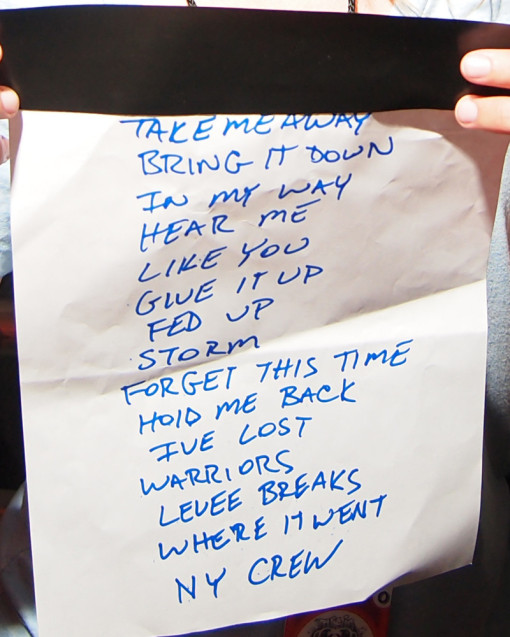 TAKE ME AWAY
BRING IT DOWN
IN MY WAY
HEAR ME
LIKE YOU
GIVE IT UP
FED UP
STORM
FORGET THIS TIME
HOLD ME BACK
I'VE LOST
WARRIORS
LEVEE BREAKS
WHERE IT WENT
NY CREW